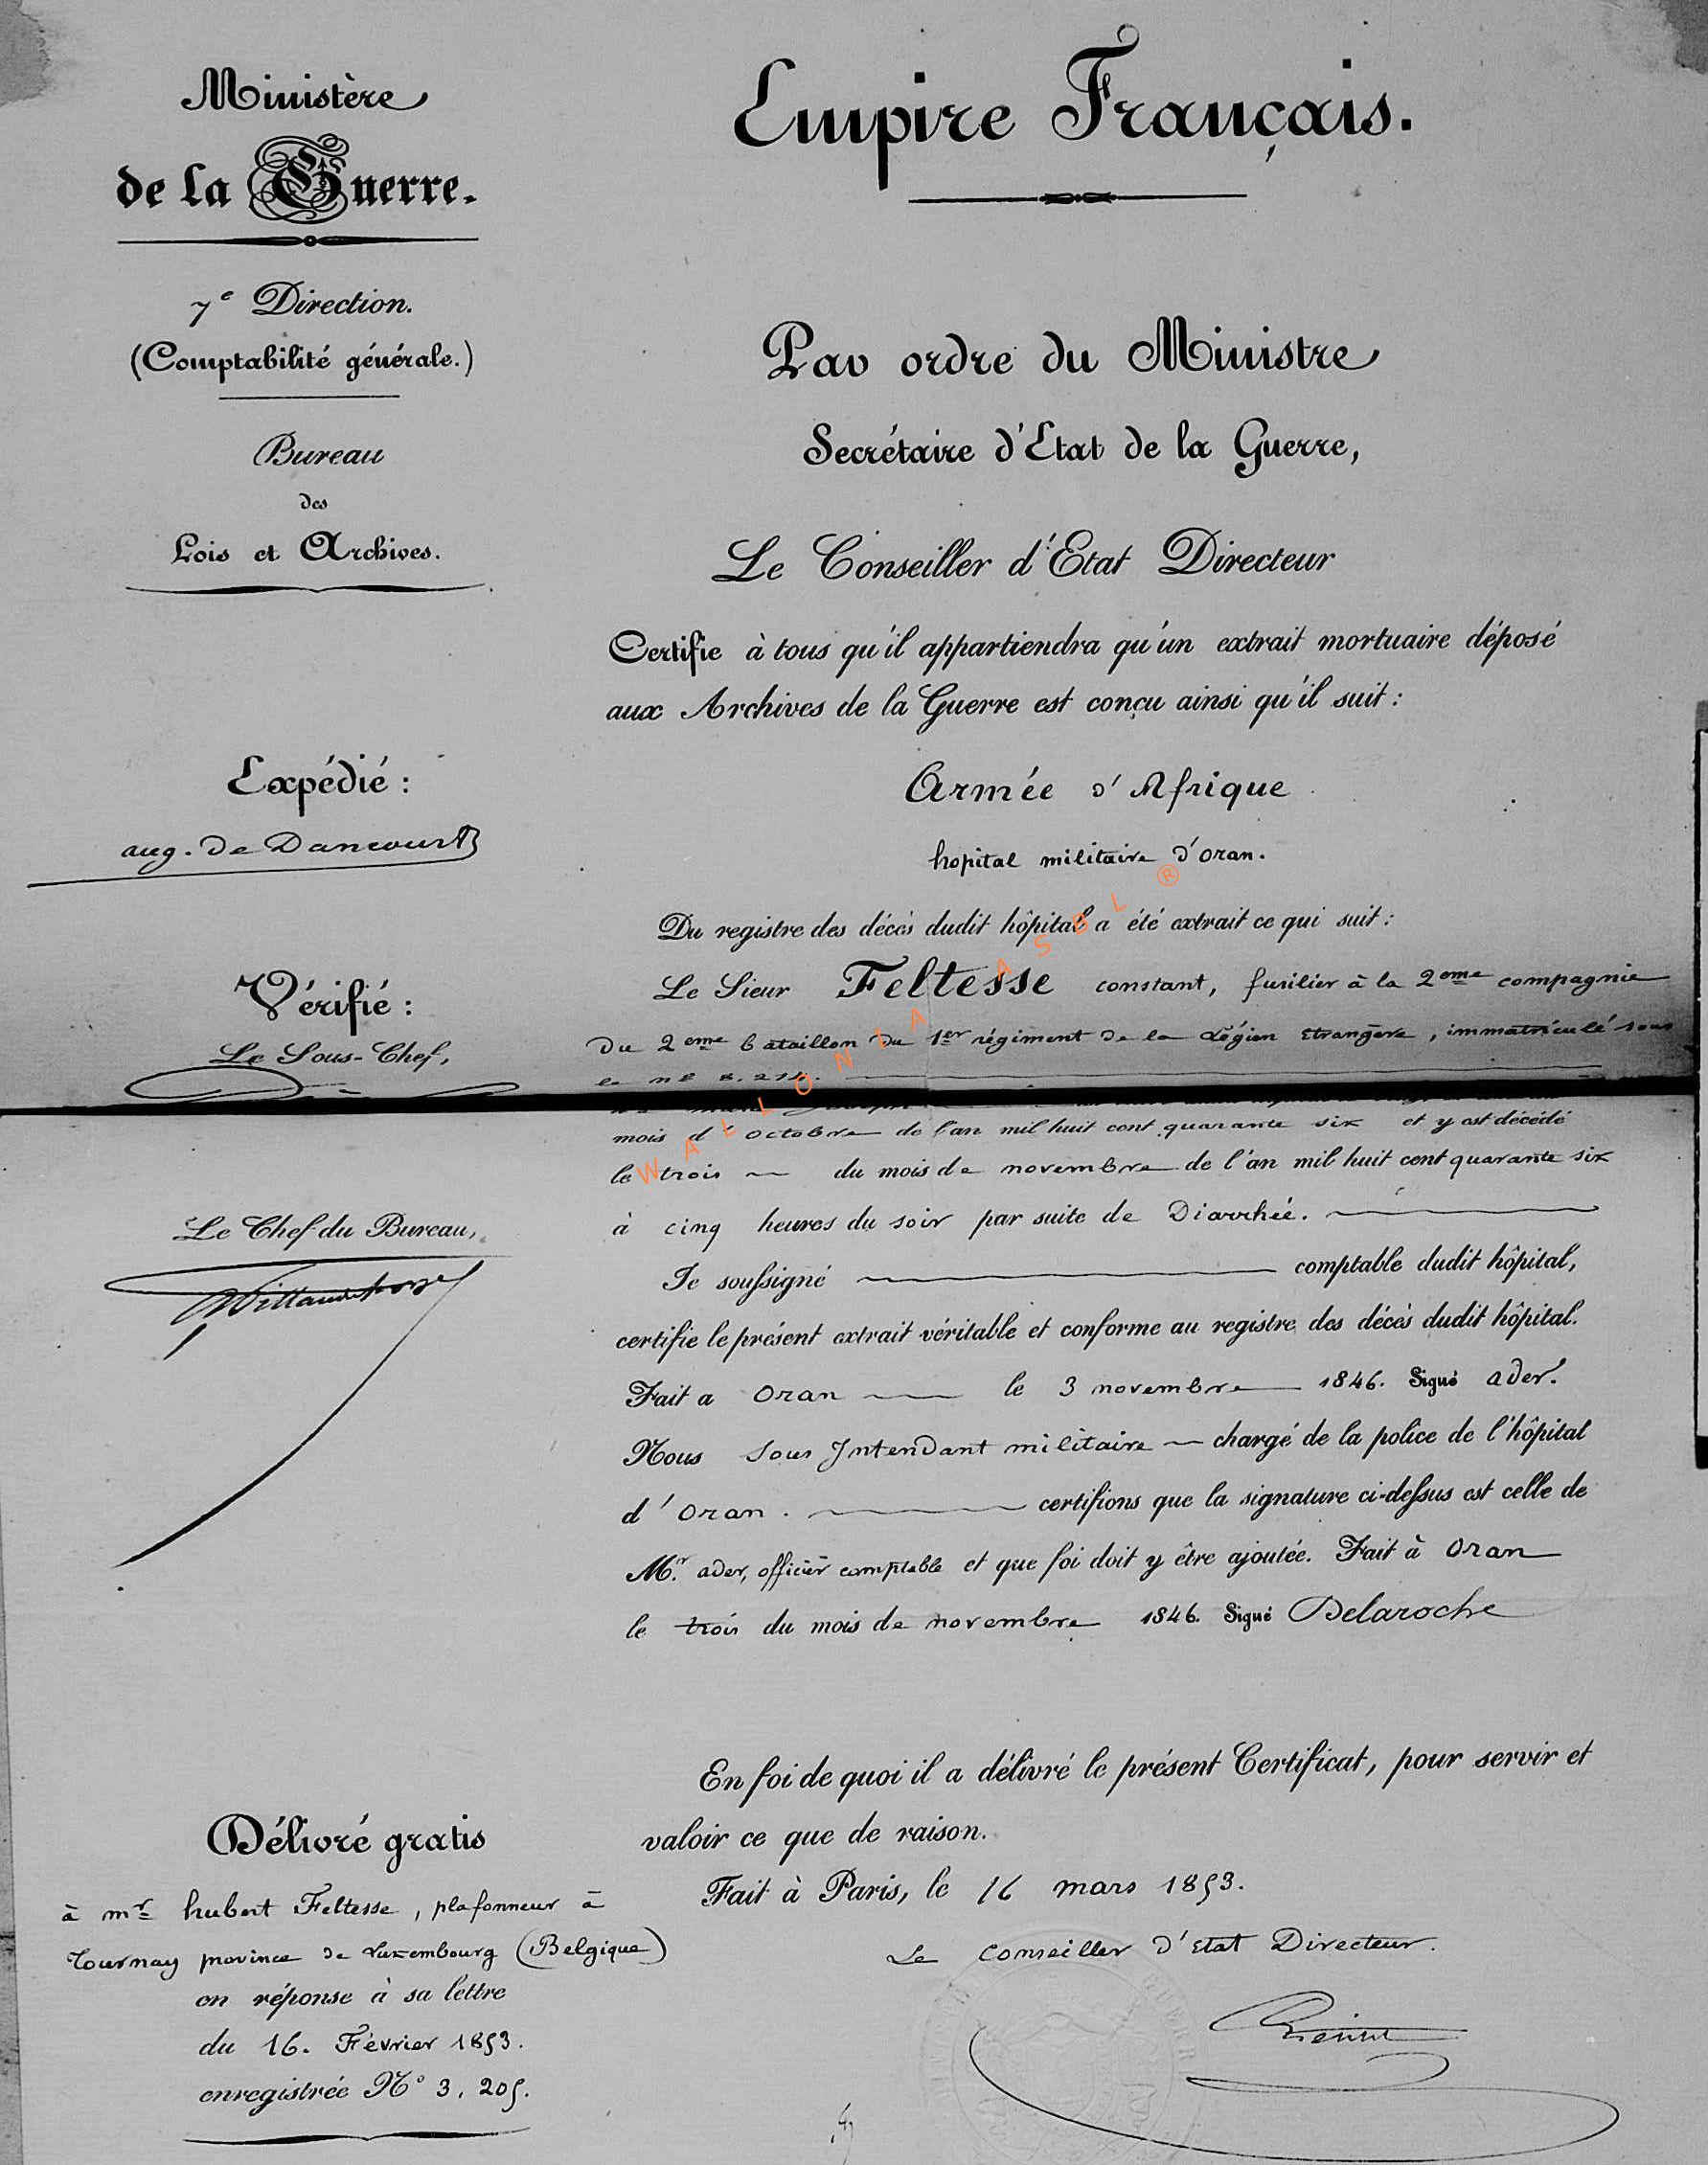 Ministère
de la Guerre.
7e Direction.
(Comptabilité générale.)
Bureau
des
Lois et Archives.
Expédié :
aug. de Dancourt
Vérifié :
Le Sous-Chef,
Le Chef du Bureau,
Délivré gratis
à mr hubert Feltesse, plafonneur à
Tournay province de Luxembourg (Belgique)
en réponse à sa lettre
du 16. Février 1853.
enregistrée No 3, 205.
Empire Français.
Par ordre du Ministre
Secrétaire d'Etat de la Guerre,
Le Conseiller d'Etat Directeur
Certifie à tous qu'il appartiendra qu'un extrait mortuaire déposé
aux Archives de la Guerre est conçu ainsi qu'il suit :
Armée d'Afrique
hopital militaire d'oran.
Du registre des décès dudit hôpital a été extrait ce qui suit :
Le Sieur Feltesse constant, fusilier à la 2eme compagnie
du 2eme bataillon du 1er régiment de la Légion Etrangère, immatriculé sous
le no
mois d'octobre de l'an mil huit cent quarante six et y est décédé
le trois du mois de novembre de l'an mil huit cent quarante six
à cinq heures du soir par suite de Diarrhée.
Je soussigné comptable dudit hôpital,
certifie le présent extrait véritable et conforme au registre des décès dudit hôpital.
Fait a oran le 3 novembre 1846. Signé ader.
Nous Sous Intendant militaire chargé de la police de l'hôpital
d'oran. certifions que la signature ci-dessus est celle de
Mr. ader, officier comptable et que foi doit y être ajoutée. Fait à oran
le trois du mois de novembre 1846. Signé Delaroche
En foi de quoi il a délivré le présent Certificat, pour servir et
valoir ce que de raison.
Fait à Paris, le 16 mars 1853.
Le Conseiller d'Etat Directeur.
WALLONIA ASBL ®